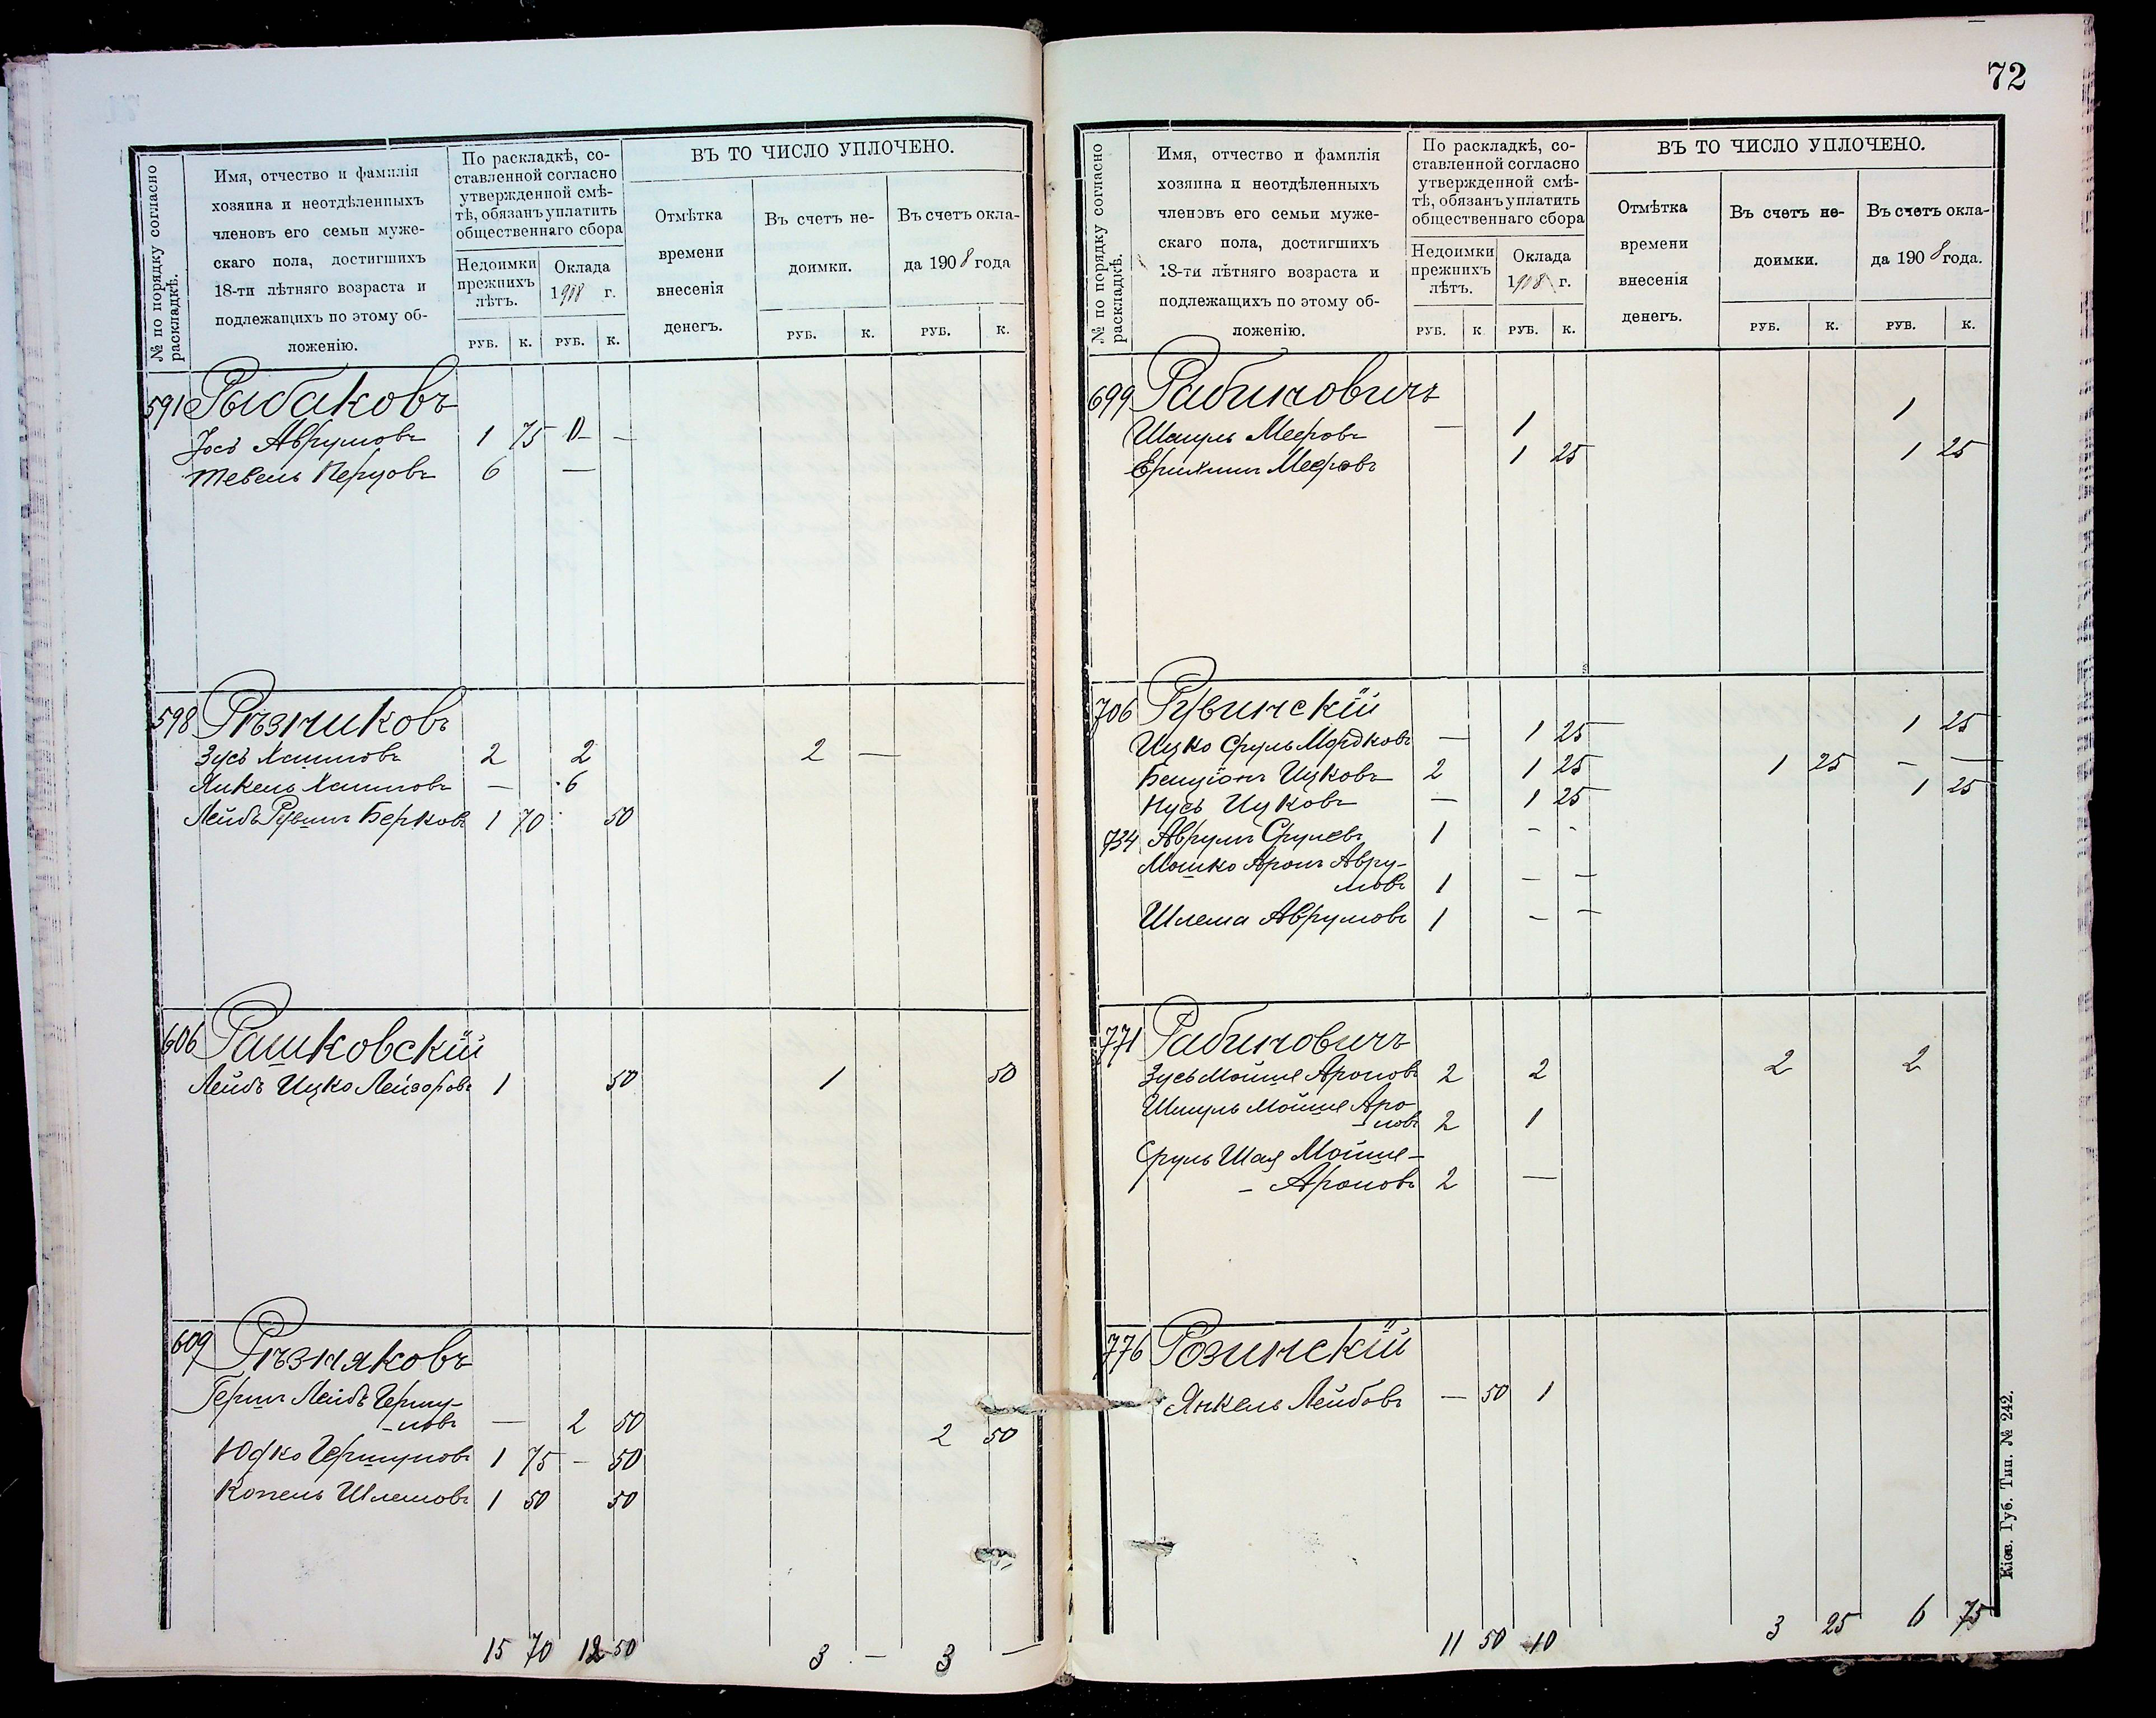 № по порядку согласно раскладкѣ.
Имя, отчество и фамилія
хозяина и неотдѣленныхъ
членовъ его семьи муже-
скаго пола, достигшихъ
18-ти лѣтняго возраста и
подлежащихъ по этому об-
ложенію.
По раскладкѣ, со-
ставленной согласно
утвержденной смѣ-
тѣ, обязанъ уплатить
общественнаго сбора
Недоимки
прежнихъ
лѣтъ.
Оклада
1908 г.
РУБ. К. РУБ. К.
ВЪ ТО ЧИСЛО УПЛОЧЕНО.
Отмѣтка
времени
внесенія
денегъ.
Въ счетъ не-
доимки.
Въ счетъ окла-
да 1908 года
РУБ. К. РУБ. К.
591 Рыбаковъ
Іосъ Аврумовъ 1 75 —
Тевель Перцовъ 6 —
598 Рѣзниковъ
Зусь Хаимовъ 2 2 2 —
Янкель Хаимовъ — 6
Лейбъ Рувинъ Берковъ 1 70 50
606 Рашковскій
Лейбъ Ицко Лейзоровъ 1 50 1 50
609 Рѣзняковъ
Гершъ Лейбъ Гершу-
-новъ — 2 50 2 50
Юдко Гершуновъ 1 75 — 50
Копель Шлемовъ 1 50 50
15 70 12 50 3 — 3 —
72
№ по порядку согласно раскладкѣ.
Имя, отчество и фамилія
хозяина и неотдѣленныхъ
членовъ его семьи муже-
скаго пола, достигшихъ
18-ти лѣтняго возраста и
подлежащихъ по этому об-
ложенію.
По раскладкѣ, со-
ставленной согласно
утвержденной смѣ-
тѣ, обязанъ уплатить
общественнаго сбора
Недоимки
прежнихъ
лѣтъ.
Оклада
1908 г.
РУБ. К РУБ. К.
ВЪ ТО ЧИСЛО УПЛОЧЕНО.
Отмѣтка
времени
внесенія
денегъ.
Въ счетъ не-
доимки.
Въ счетъ окла-
да 1908 года.
РУБ. К. РУБ. К.
699 Рабиновичъ
Шмуль Мееровъ — 1 1
Мееровъ 1 25 1 25
706 Рувинскій
Ицко Сруль Мордковъ — 1 25 1 25
Бенціонъ Ицковъ 2 1 25 1 25 — —
Нусь Ицковъ — 1 25 1 25
734 Аврумъ Срулевъ 1 - -
Мошко Аронъ Авру-
мовъ 1 — —
Шлема Аврумовъ 1 — —
771 Рабиновичъ
Зусь Мойше Ароновъ 2 2 2 2
Шмуль Мойше Аро-
-новъ 2 1
Сруль Шая Мойше-
- Ароновъ 2 —
776 Розинскій
Янкель Лейбовъ — 50 1
11 50 10 3 25 6 75
Кіев. Губ. Тип. № 242.